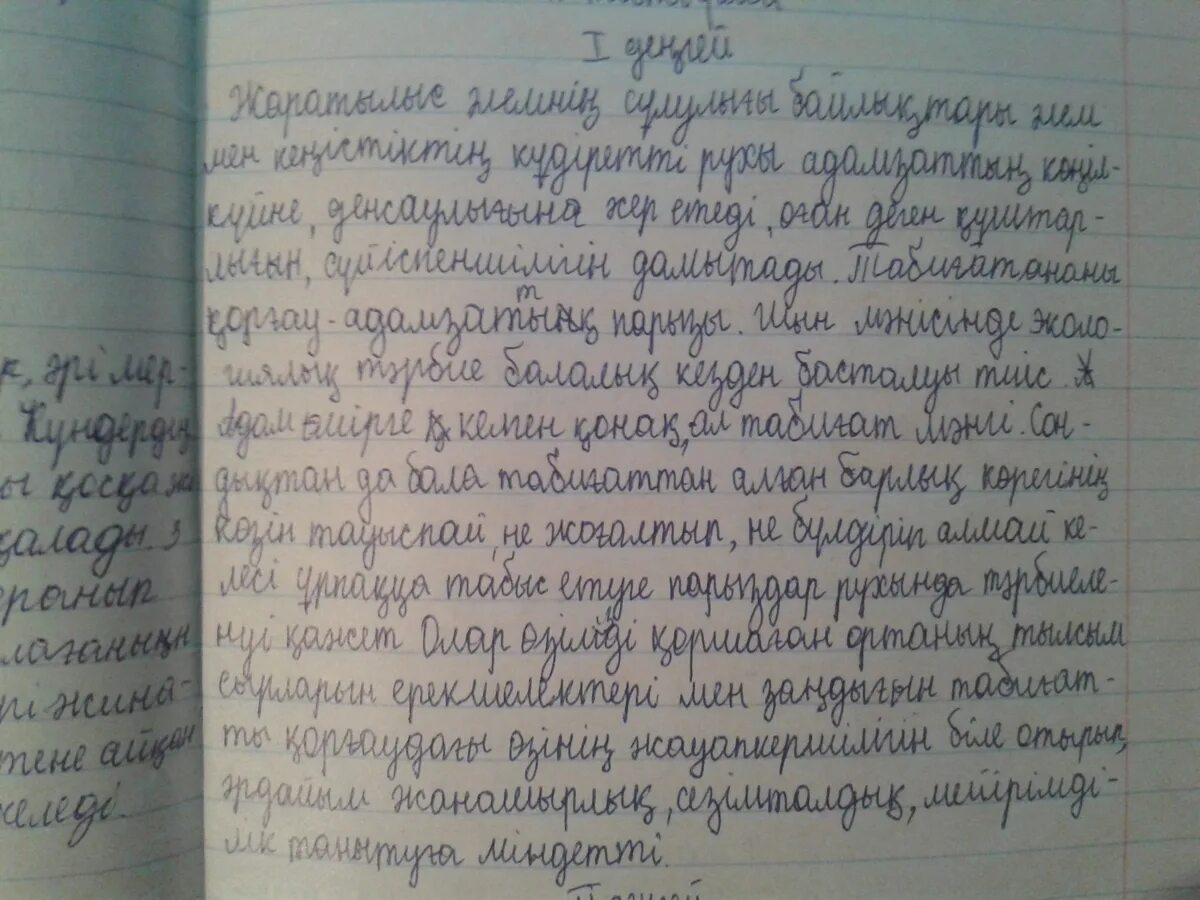 I деңгей
Жаратылыс әлемнің сұлулығы байлықтары әлем
мен кеңістіктің құдіретті рухы адамзаттың көңіл-
күйне, денсаулығына әер етеді, оған деген құштар-
лығын, сүйіспеншілігін дамытады. Табиғатананы
қорғау - адамзаттың парызы. Шын мәнісінде эколо-
гиялық тәрбие балалық кезден басталуы тиіс.
Адам өмірге келген қонақ, ал табиғат мәнгі. Сон-
дықтан да бала табиғаттан алған барлық көрегінің
көзін тауыспай, не жоғалтып, не бүлдіріп алмай ке-
лесі ұрпаққа табыс етуге парыздар рухында тәрбиеле-
нуі қажет Олар өзімізді қоршаған ортаның тылсым
сырларын ерекшелектері мен заңдығын табиғат-
ты қорғаудағы өзінің жауапкершілігін біле отырып,
әрдайым жанашырлық, сезімталдық, мейірімді-
лік танытуға міндетті.
к, әрі мер-
Күндердің
ы қосқан
қалады. З
ранып
лағанын
рі жина-
тене айқан
келеді.